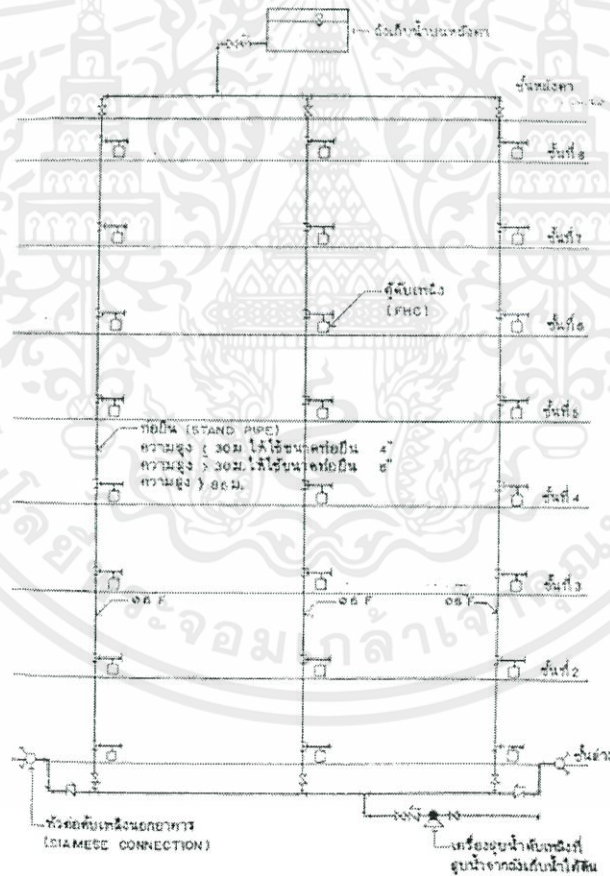 ถังเก็บน้ำบนหลังคา
ชั้นหลังคา
ชั้นที่ 8
ชั้นที่ 7
ตู้ดับเพลิง
(FHC)
ชั้นที่ 6
ชั้นที่ 5
ท่อยืน (STAND PIPE)
ความสูง 30ม. ให้ใช้ขนาดท่อยืน 4"
ความสูง > 30ม. ให้ใช้ขนาดท่อยืน 6"
ความสูง > 86 ม.
ชั้นที่ 4
ชั้นที่ 3
Ø6 F Ø6 F Ø6 F
ชั้นที่ 2
ชั้นล่าง
หัวต่อดับเพลิงนอกอาคาร
(SIAMESE CONNECTION)
เครื่องสูบน้ำดับเพลิงที่
สูบน้ำจากถังเก็บน้ำใต้ดิน